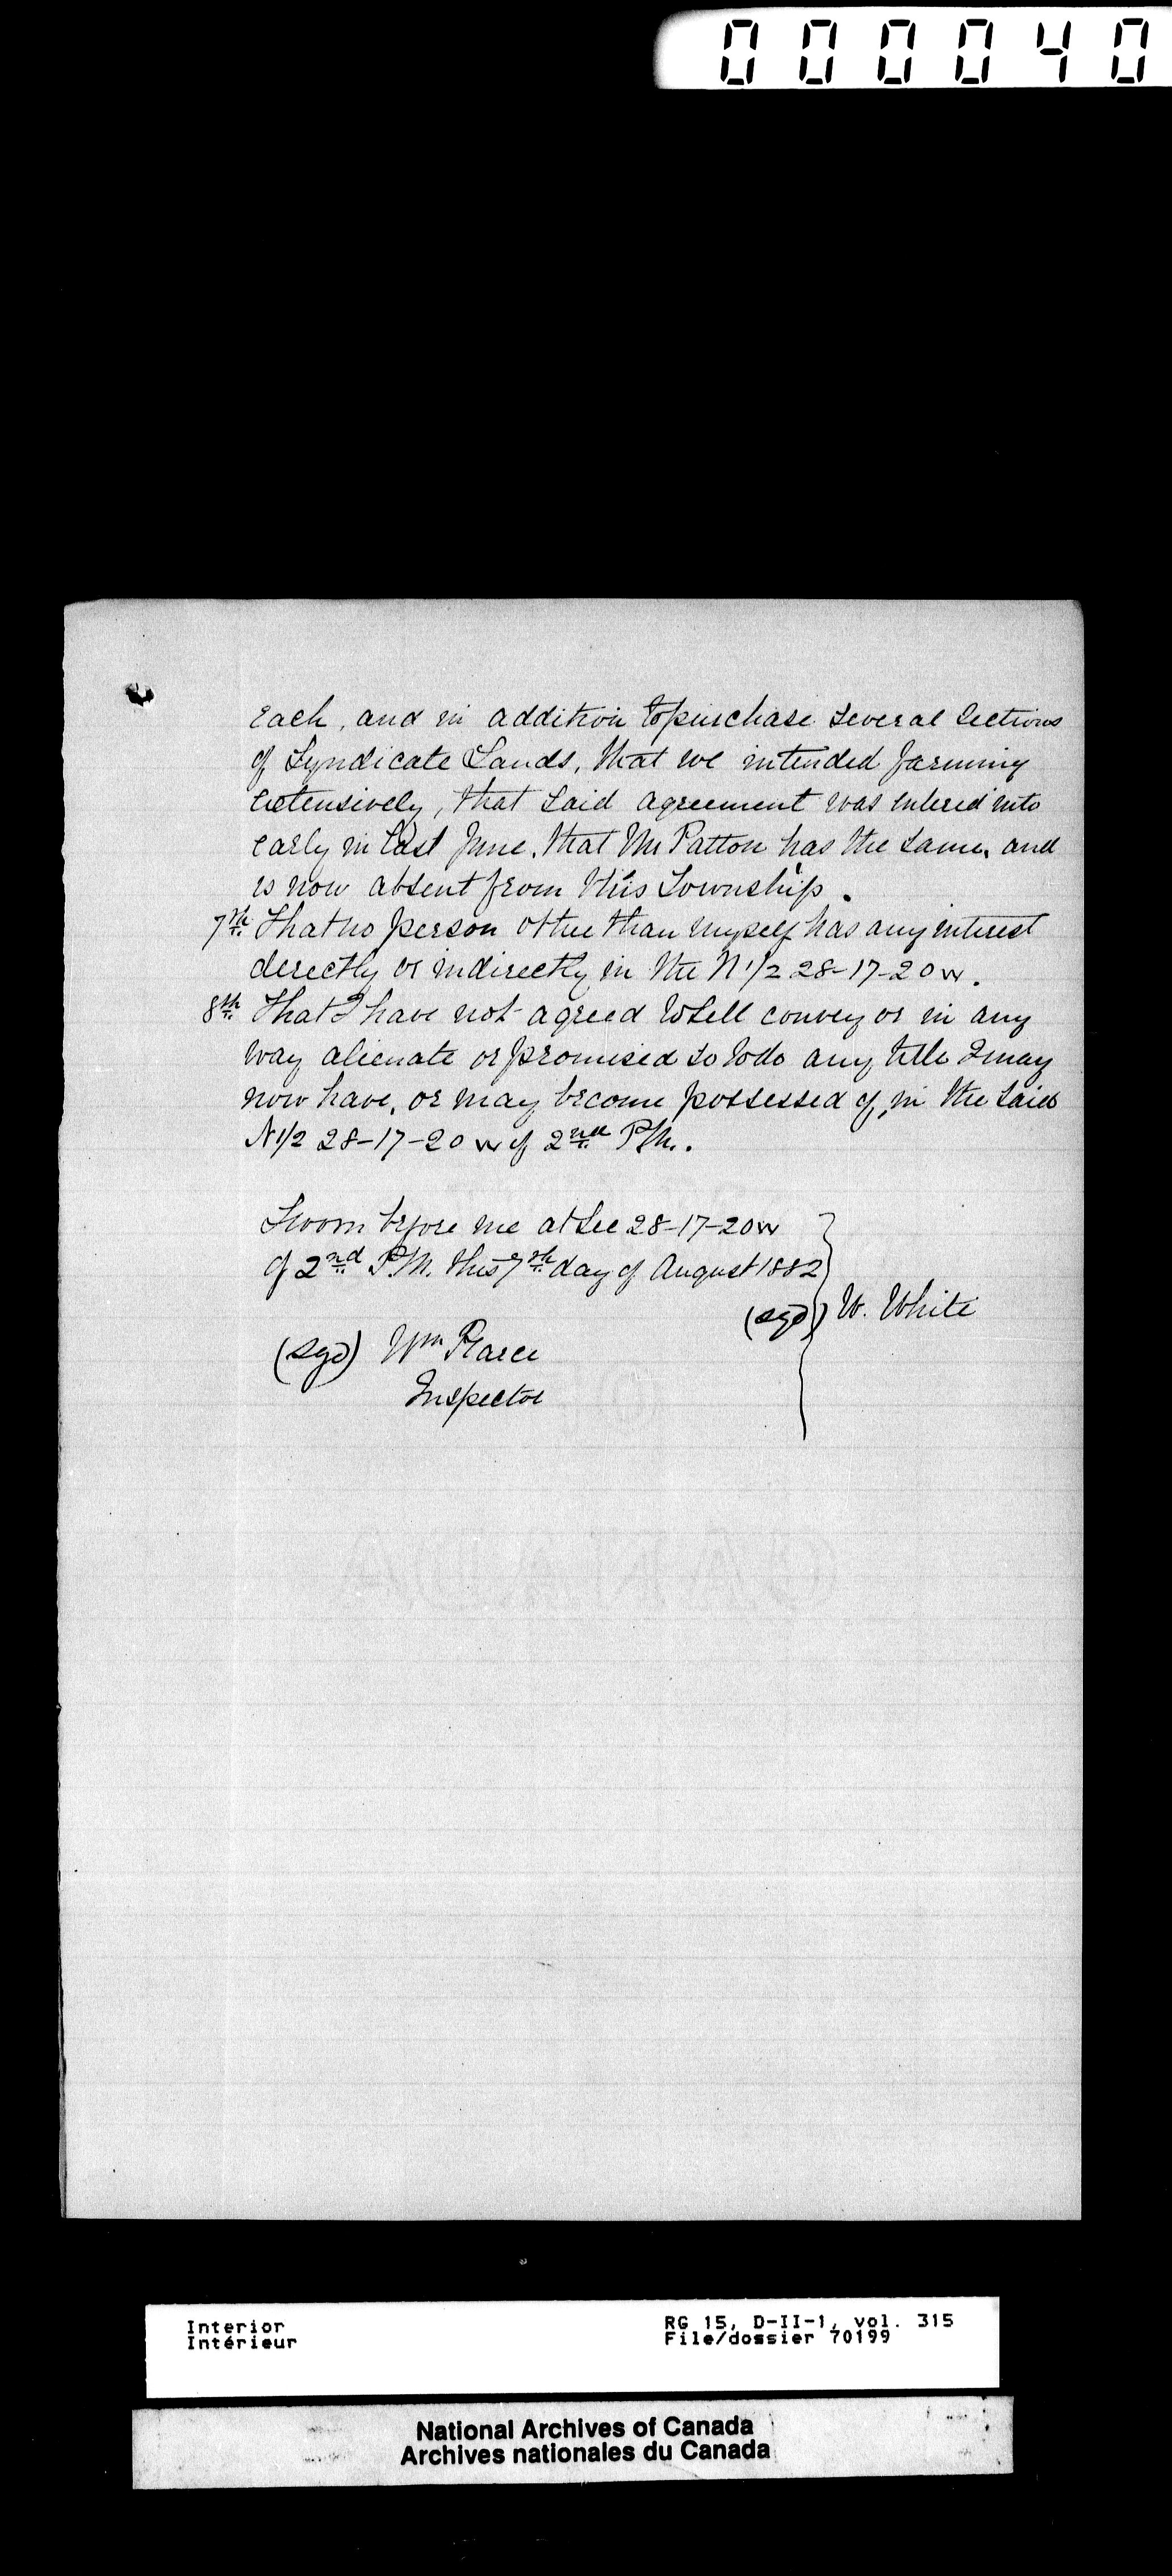 000040
each, and in addition to purchase several Sections
of Syndicate Lands, that we intended farming
extensively, that said agreement was entered into
early in last June, that Mr Patton has the same, and
is now absent from this Township.
7th. That no person other than myself has any interest
directly or indirectly in the N 1/2 28-17-20 W.
8th. That I have not agreed to sell convey or in any
way alienate or promised so to do any title I may
now have, or may become possessed of, in the said
N 1/2 28-17-20 W of 2nd P.M..
Sworn before me at Sec 28-17-20 W
of 2nd P.M. this 7th day of August 1882
(sgd) W. White
(sgd) Wm Pearce
Inspector
CANADA
Interior RG 15, D-II-1, vol. 315
Intérieur File/dossier 70199
National Archives of Canada
Archives nationales du Canada